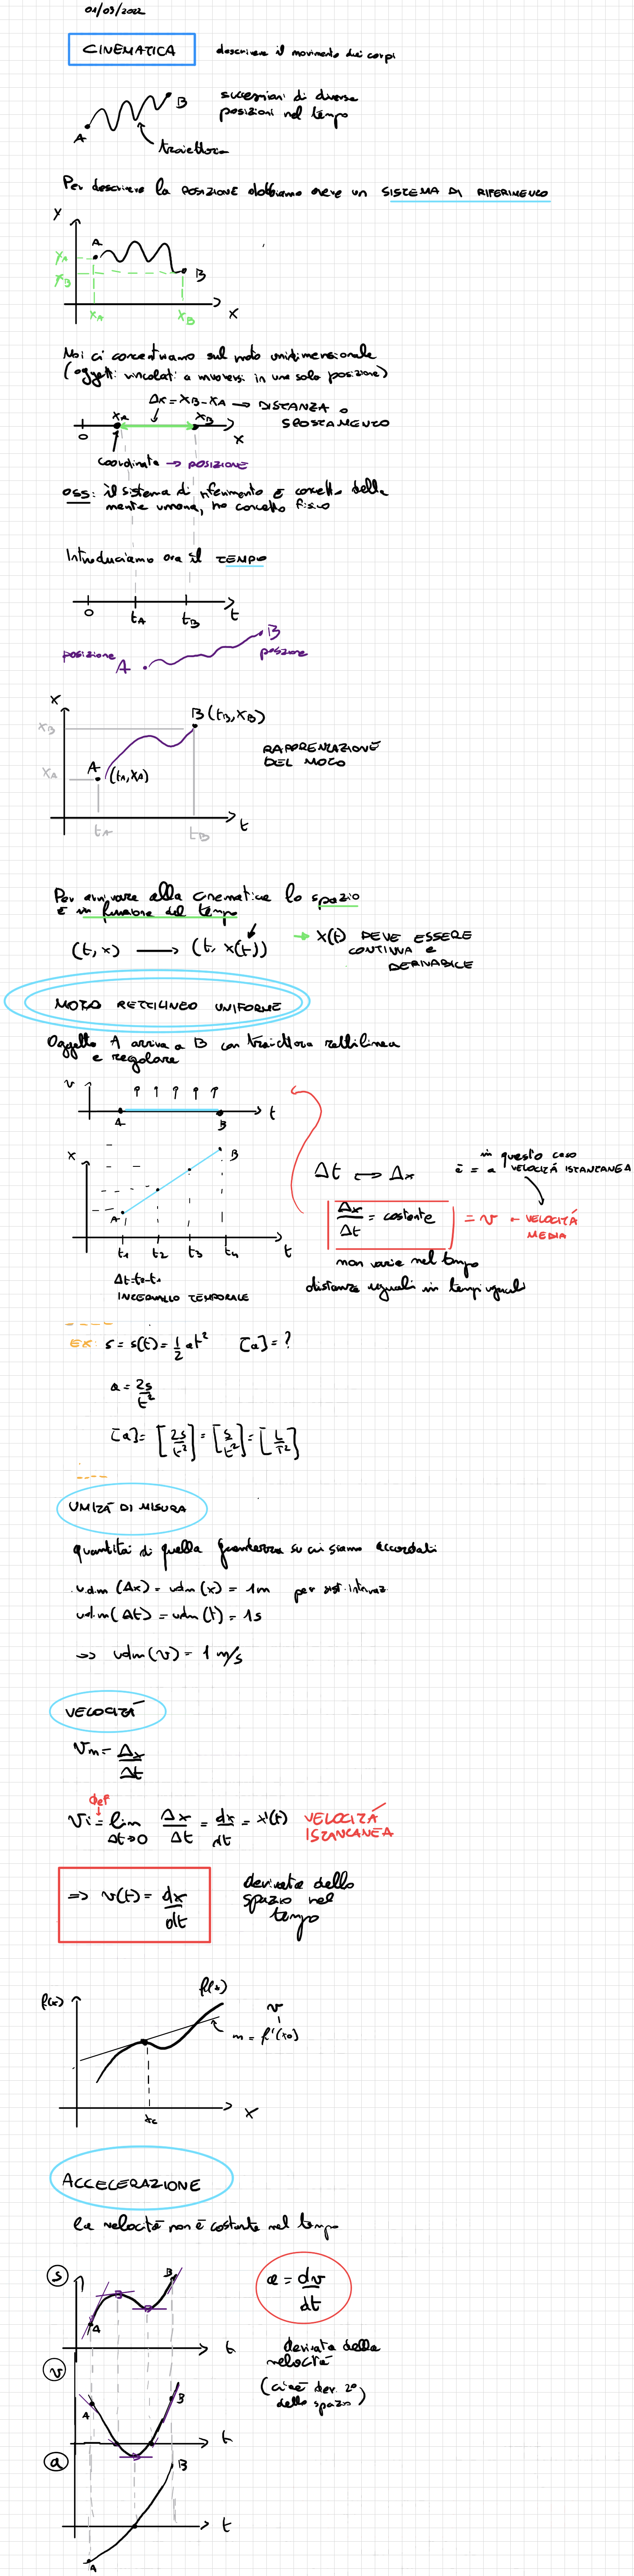 01/03/2022
CINEMATICA descrivere il movimento dei corpi
successioni di diverse
posizioni nel tempo
A B
traiettoria
Per descrivere la POSIZIONE dobbiamo avere un SISTEMA DI RIFERIMENTO
Y
A
YA
YB
B
XA XB X
Noi ci concentriamo sul moto unidimensionale
(oggetti vincolati a muoversi in una sola posizione)
Δx = XB - XA → DISTANZA o
SPOSTAMENTO
XA XB
0 X
coordinata → POSIZIONE
OSS: il sistema di riferimento è concetto della
mente umana, no concetto fisico
Introduciamo ora il TEMPO
0 tA tB t
posizione A B posizione
X
XB
B (tB, XB)
RAPPRESENTAZIONE
DEL MOTO
XA
A (tA, XA)
tA tB t
Per arrivare alla cinematica lo spazio
è in funzione del tempo
(t, x) → (t, x(t)) → X(t) DEVE ESSERE
CONTINUA e
DERIVABILE
MOTO RETTILINEO UNIFORME
Oggetto A arriva a B con traiettoria rettilinea
e regolare
v
A B t
X
A B
t1 t2 t3 t4 t
Δt = t2-t1
INTERVALLO TEMPORALE
in questo caso
è = a VELOCITÀ ISTANTANEA
Δt ↔ Δx
Δx/Δt = costante = v ← VELOCITÀ
MEDIA
non varia nel tempo
distanze uguali in tempi uguali
EX: s = s(t) = 1/2 at² [a] = ?
a = 2s/t²
[a] = [2s/t²] = [s/t²] = [L/T²]
UNITÀ DI MISURA
quantità di quella grandezza su cui siamo accordati
u.d.m (Δx) = udm (x) = 1m per sist. internaz
udm (Δt) = udm (t) = 1s
⇒ udm (v) = 1 m/s
VELOCITÀ
Vm = Δx/Δt
def
Vi = lim Δt→0 Δx/Δt = dx/dt = x'(t) VELOCITÀ
ISTANTANEA
⇒ v(t) = dx/dt
derivata dello
spazio nel
tempo
f(x)
f(x)
v
m = f'(x0)
x0 X
ACCELERAZIONE
la velocità non è costante nel tempo
S
A B t
a = dv/dt
derivata della
velocità
(cioè der. 2°
dello spazio)
v
A B t
a
B
t
A